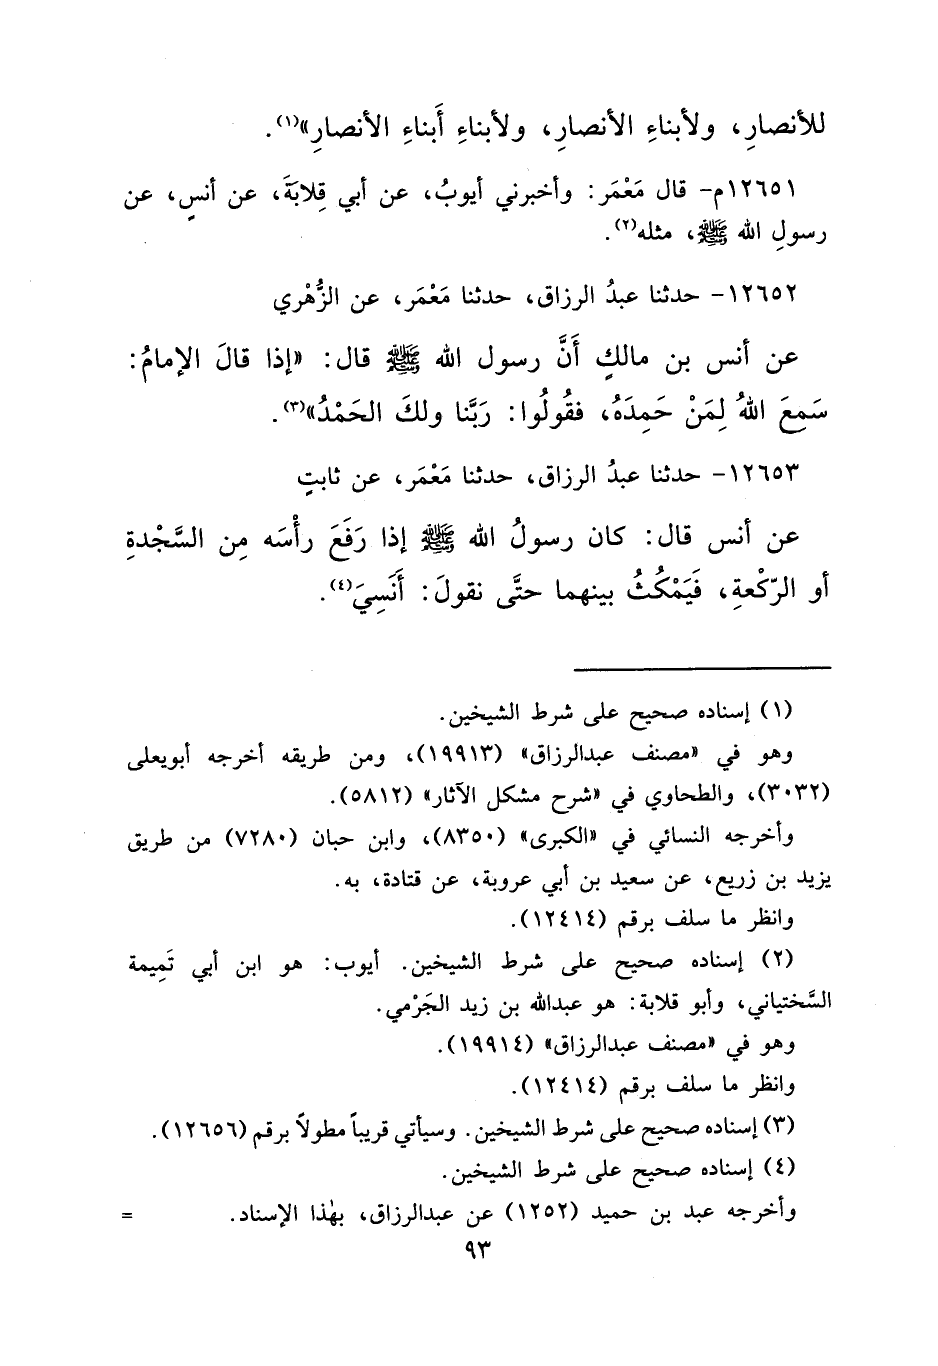 للأنصارِ، ولأبناءِ الأنصارِ، ولأبناءِ أَبناءِ الأنصارِ»(١).
١٢٦٥١م- قال مَعْمَر: وأخبرني أيوبُ، عن أبي قِلابَةَ، عن أنسٍ، عن
رسولِ الله ﷺ، مثله(٢).
١٢٦٥٢- حدثنا عبدُ الرزاق، حدثنا مَعْمَر، عن الزُّهْري
عن أنس بن مالكٍ أَنَّ رسول الله ﷺ قال: «إذا قالَ الإمامُ:
سَمِعَ اللهُ لِمَنْ حَمِدَهُ، فقُولُوا: رَبَّنا ولكَ الحَمْدُ»(٣).
١٢٦٥٣- حدثنا عبدُ الرزاق، حدثنا مَعْمَر، عن ثابتٍ
عن أنس قال: كان رسولُ الله ﷺ إذا رَفَعَ رأْسَه مِن السَّجْدةِ
أو الرّكْعةِ، فَيَمْكُثُ بينهما حتَّى نقولَ: أَنَسِيَ(٤).
(١) إسناده صحيح على شرط الشيخين.
وهو في «مصنف عبدالرزاق» (١٩٩١٣)، ومن طريقه أخرجه أبويعلى
(٣٠٣٢)، والطحاوي في «شرح مشكل الآثار» (٥٨١٢).
وأخرجه النسائي في «الكبرى» (٨٣٥٠)، وابن حبان (٧٢٨٠) من طريق
يزيد بن زريع، عن سعيد بن أبي عروبة، عن قتادة، به.
وانظر ما سلف برقم (١٢٤١٤).
(٢) إسناده صحيح على شرط الشيخين. أيوب: هو ابن أبي تَمِيمة
السَّختياني، وأبو قلابة: هو عبدالله بن زيد الجَرْمي.
وهو في «مصنف عبدالرزاق» (١٩٩١٤).
وانظر ما سلف برقم (١٢٤١٤).
(٣) إسناده صحيح على شرط الشيخين. وسيأتي قريباً مطولاً برقم (١٢٦٥٦).
(٤) إسناده صحيح على شرط الشيخين.
وأخرجه عبد بن حميد (١٢٥٢) عن عبدالرزاق، بهٰذا الإسناد. =
٩٣